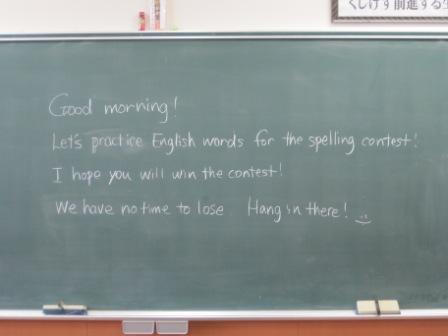 くじけず前進する生
Good morning!
Let's practice English words for the spelling contest!
I hope you will win the contest!
We have no time to lose Hang in there!